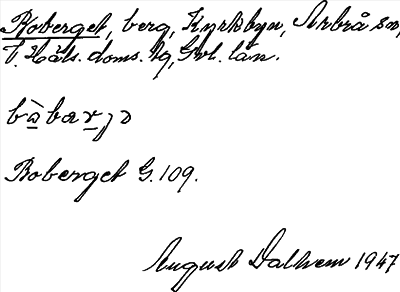 Boberget, berg, Kyrkbyn, Arbrå sn,
V. Häls. doms. tg, Gvl. län.
Boberget G. 109.
August Dalhem 1947